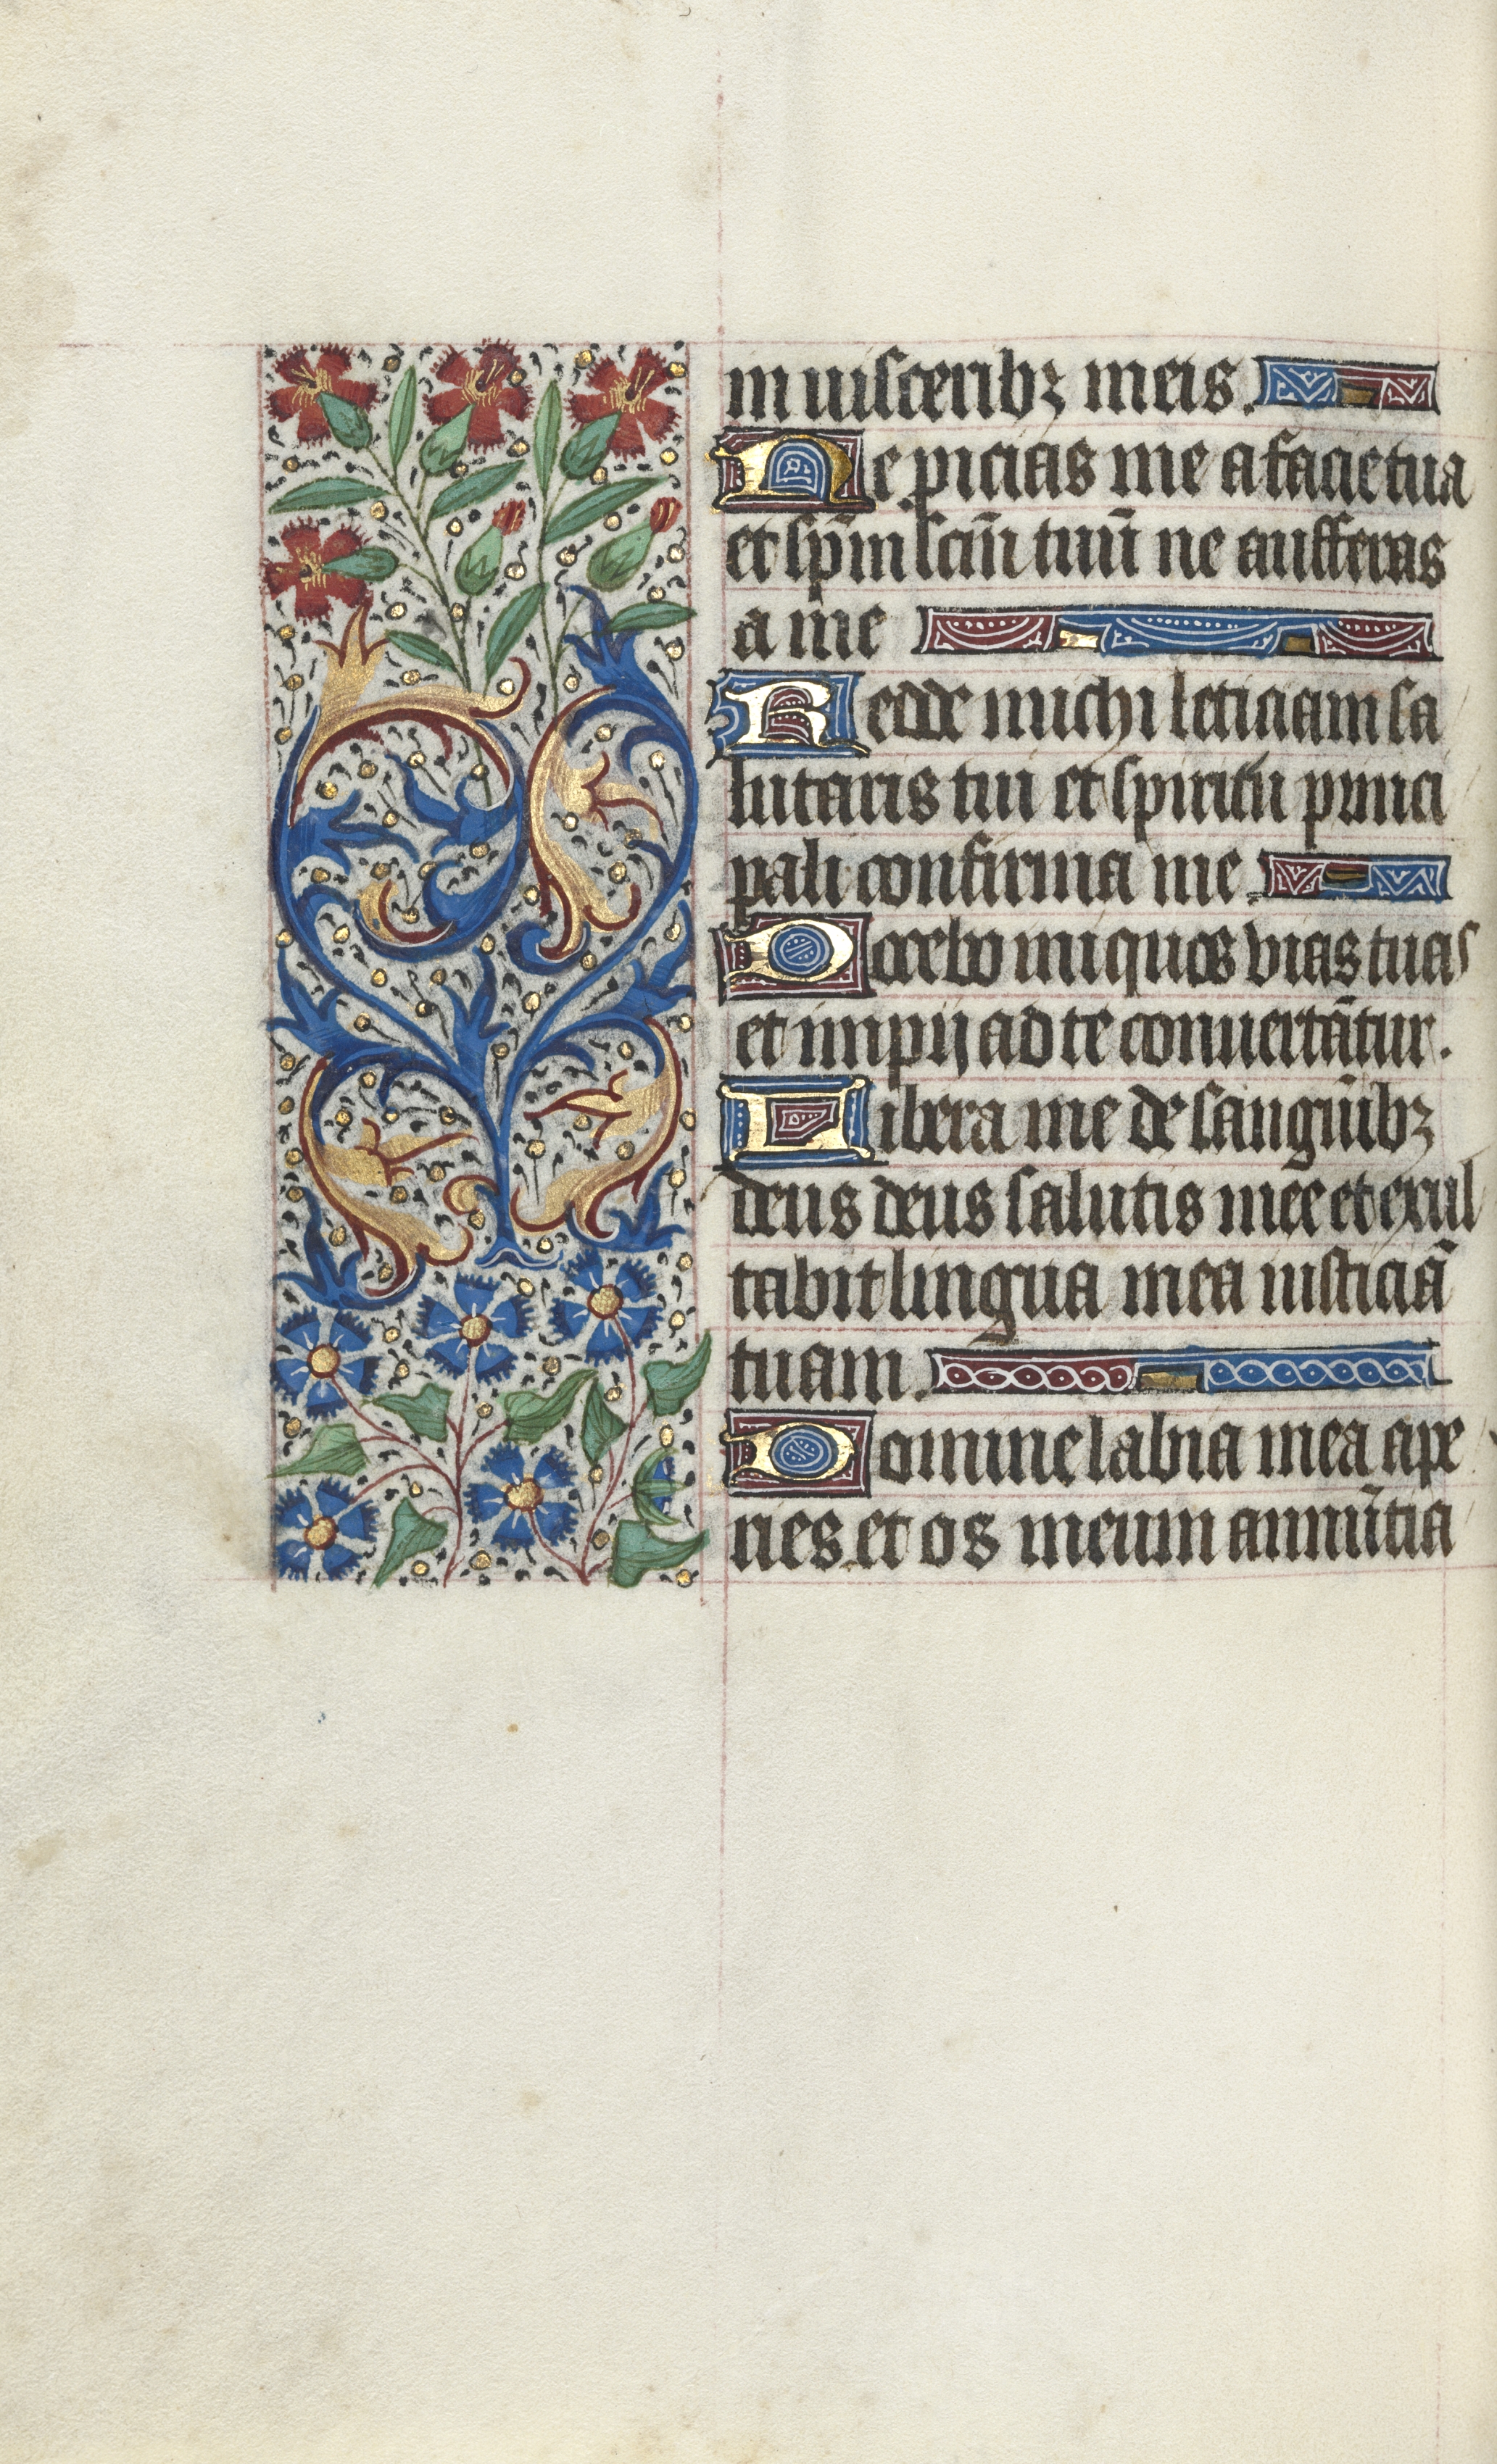 in uisceribꝫ meis.
Ne picias me a facie tua
et sp̄m sc̄m tuū ne aufferas
a me
Redde michi leticiam sa
lutaris tui et spiritu princi
pali confirma me.
Docebo iniquos vias tuas
et impij ad te conuertātur.
Libera me de sanguīibꝫ
deus deus salutis mee et exul
tabit lingua mea iusticiā
tuam.
Domine labia mea ape
ries et os meum annūtia